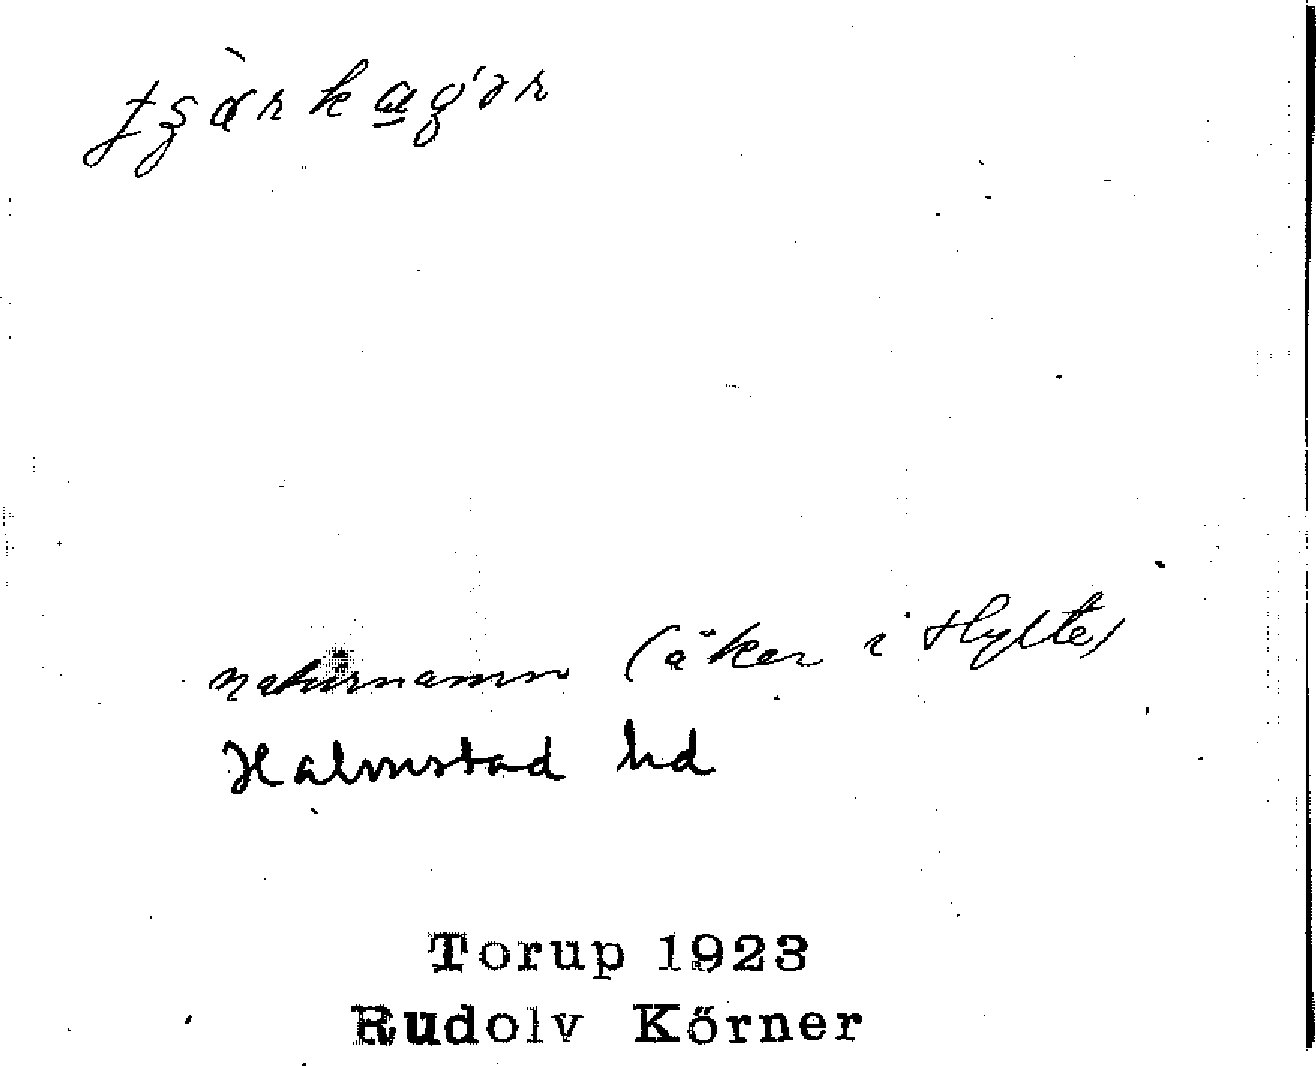 naturnamn (åker i Hylte)
Halmstad hd
Torup 1923
Rudolv Körner